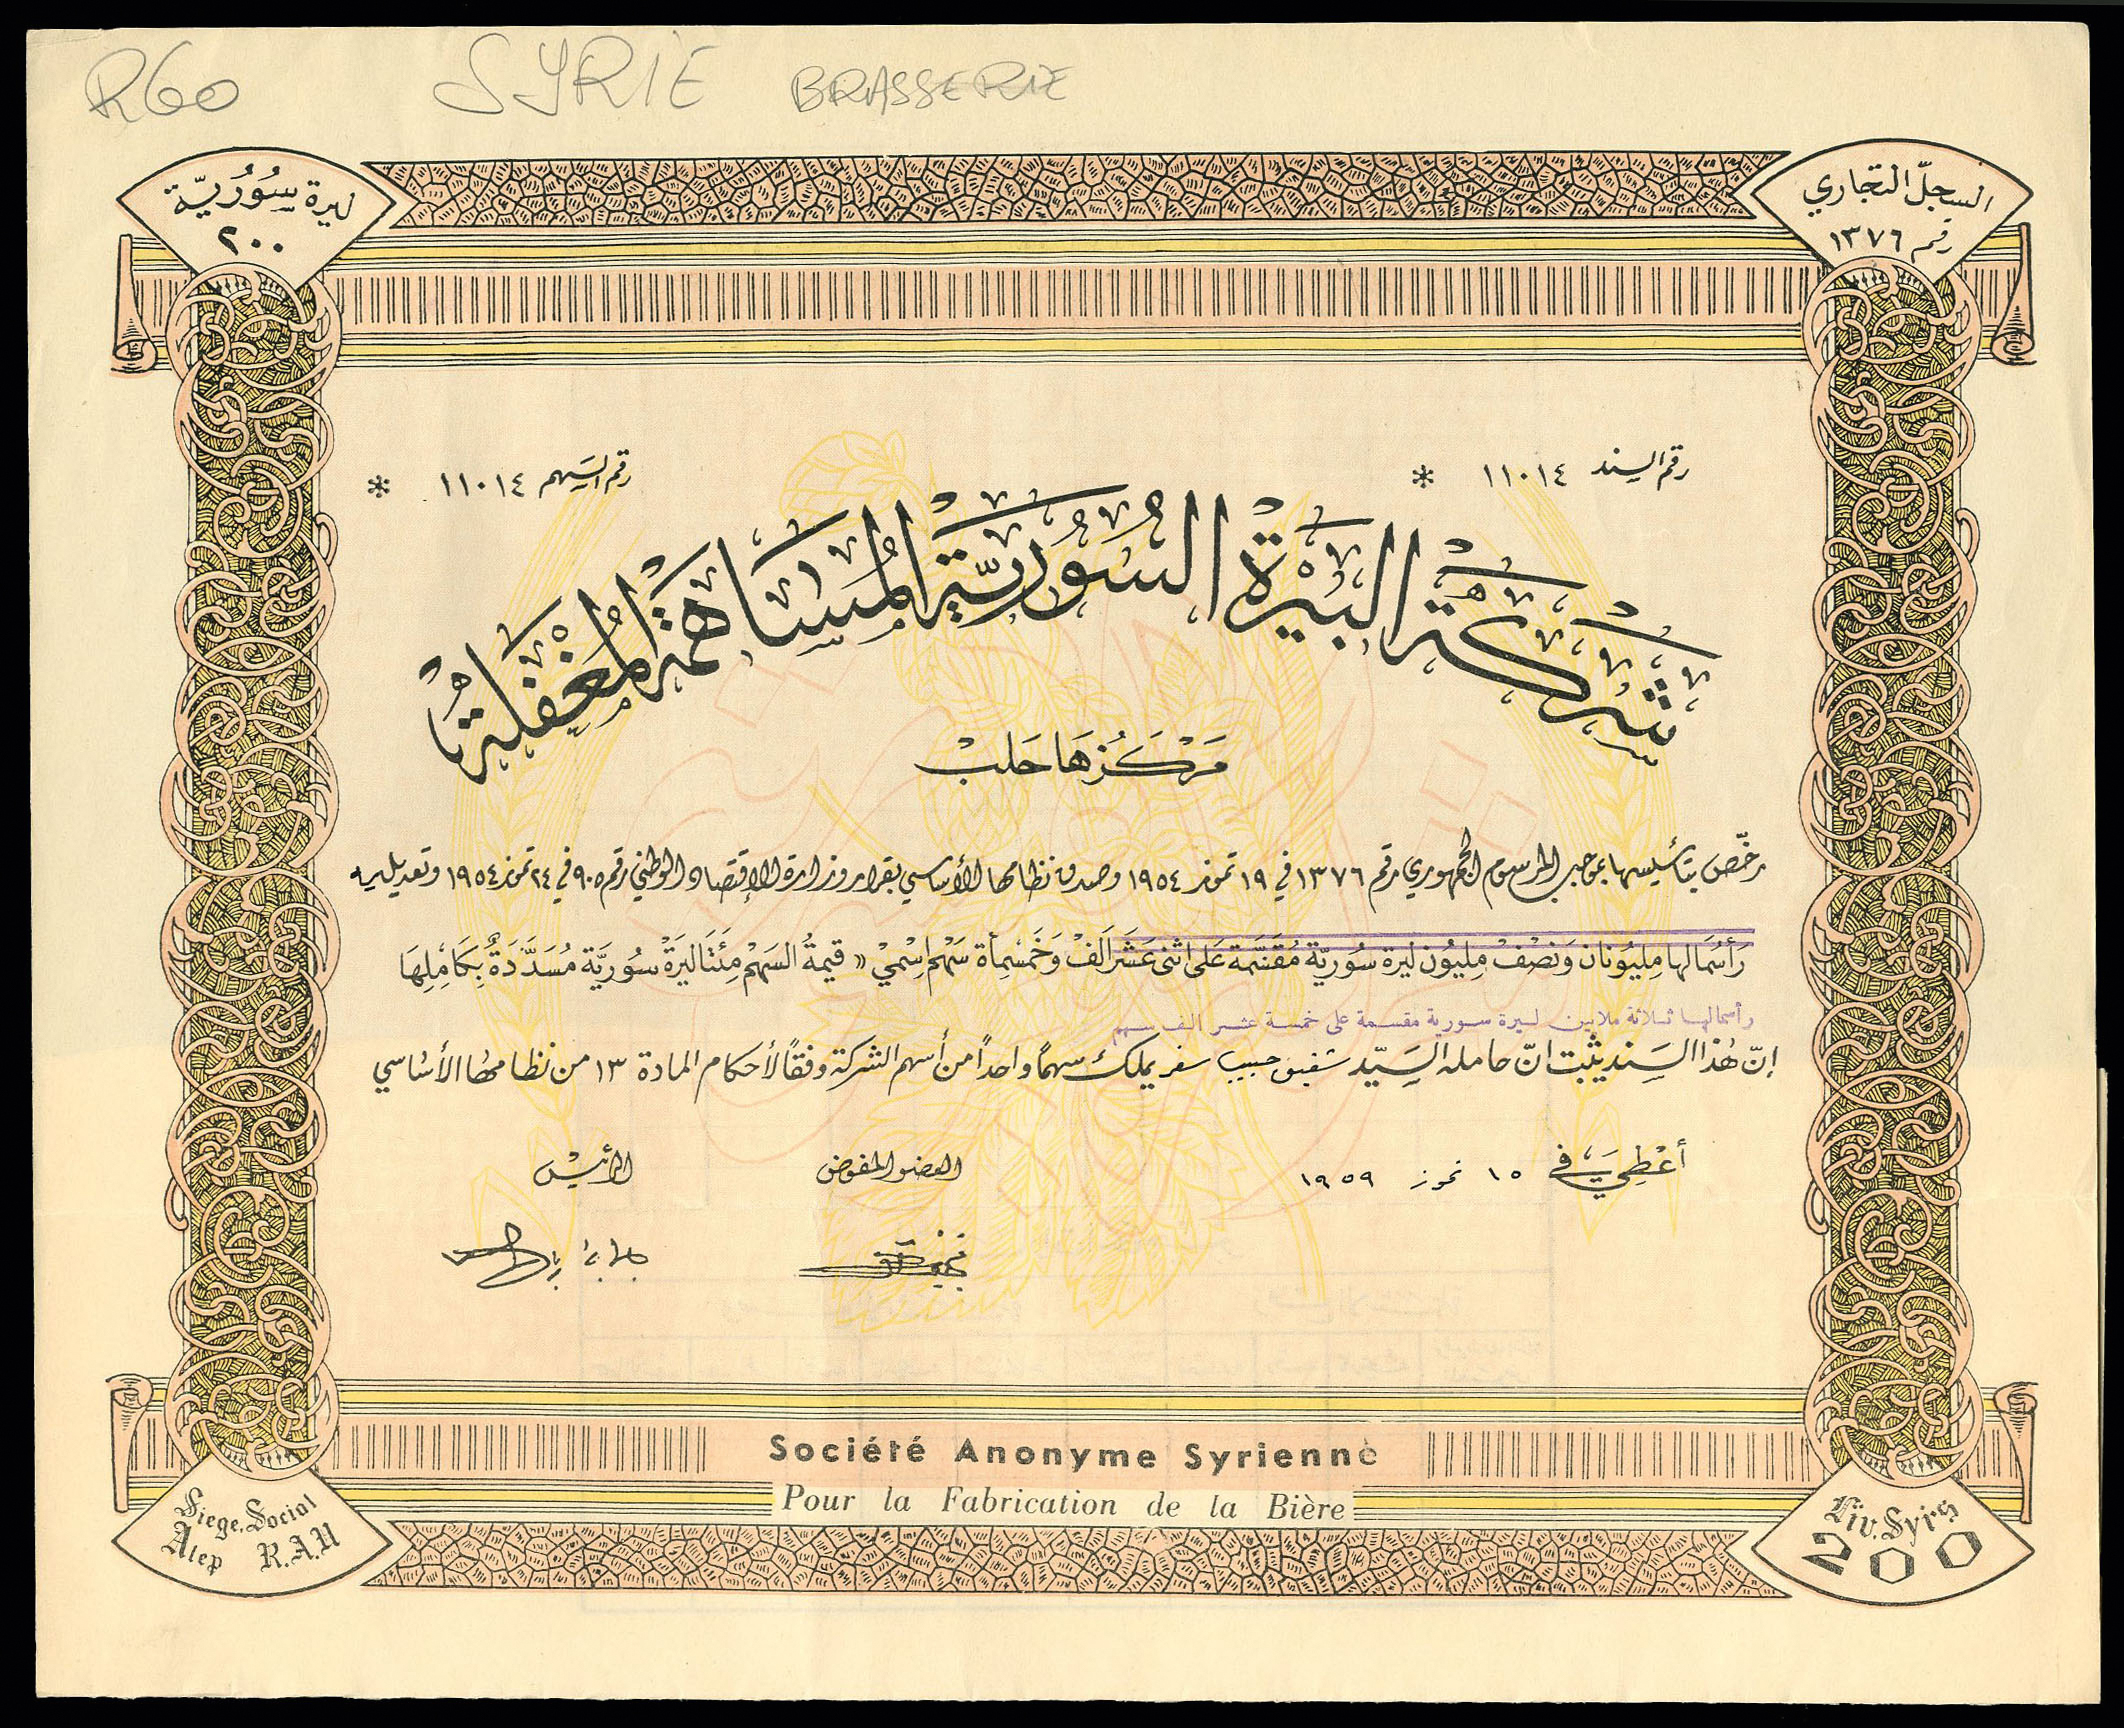 R60 SYRIE BRASSERIE
السجلّ التجاري
رقم ١٣٧٦
ليرة سُوُريّة
٢٠٠
رقم السند ١١٠١٤ *
رقم السهم ١١٠١٤ *
شركة البيرة السورية المساهمة المغفلة
مَركزهَا حَلبْ
رخّص بتأسيسها بموجب المرسوم الجمهوري رقم ١٣٧٦ في ١٩ تموز ١٩٥٤ وصدق نظامها الأساسي بقرار وزارة الاقتصاد الوطني رقم ٩٠٥ في ٢٤ تموز ١٩٥٤ وتعديليه
رَأسُمَالها مِليُونان وَنصْفْ مِليُون ليرة سُوريّة مُقسَّمة عَلى اثنى عَشَر اَلفْ وَخَمسمِأة سَهْم اسِميْ « قيمةُ السَهْم مِئتَا ليَرَةْ سُوريَّة مُسَدَّدَةٌ بِكَامْلِهَا
رأسمالها ثلاثة ملايين ليرة سورية مقسمة على خمسة عشر الف سهم
إنّ هٰذا السَند يثبت انّ حامله السَيّد شفيق حبيب سفر يملك سهماً واحداً من أسهم الشركة وفقاً لأحكام المادة ١٣ من نظامهَا الأسَاسي
أعْطِيَ في ١٥ تموز ١٩٥٩
العضو المفوض
الرئيسْ
Société Anonyme Syrienne
Pour la Fabrication de la Bière
Siege. Social
Alep R.A.U
Liv. Syres
200